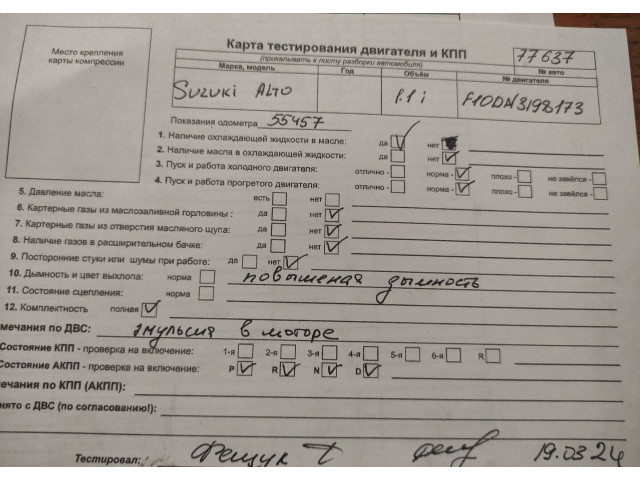 Место крепления
карты компрессии
Карта тестирования двигателя и КПП
77637
(прикалывать к листу разборки автомобиля)
№ авто
Марка, модель
Год
Объём
№ двигателя
Suzuki Alto
1.1 i
F10DN3198173
Показания одометра 55457
1. Наличие охлаждающей жидкости в масле: да нет
2. Наличие масла в охлаждающей жидкости: да нет
3. Пуск и работа холодного двигателя: отлично - норма - плохо - не завёлся -
4. Пуск и работа прогретого двигателя: отлично - норма - плохо - не завёлся -
5. Давление масла: есть нет
6. Картерные газы из маслозаливной горловины : да нет
7. Картерные газы из отверстия масляного щупа: да нет
8. Наличие газов в расширительном бачке: да нет
9. Посторонние стуки или шумы при работе: да нет
10. Дымность и цвет выхлопа: норма повышеная дымность
11. Состояние сцепления: норма
12. Комплектность полная
мечания по ДВС: эмульсия в моторе
Состояние КПП - проверка на включение: 1-я 2-я 3-я 4-я 5-я 6-я R
Состояние АКПП - проверка на включение: P R N D
ечания по КПП (АКПП):
нято с ДВС (по согласованию!):
Тестировал: 19.03.24